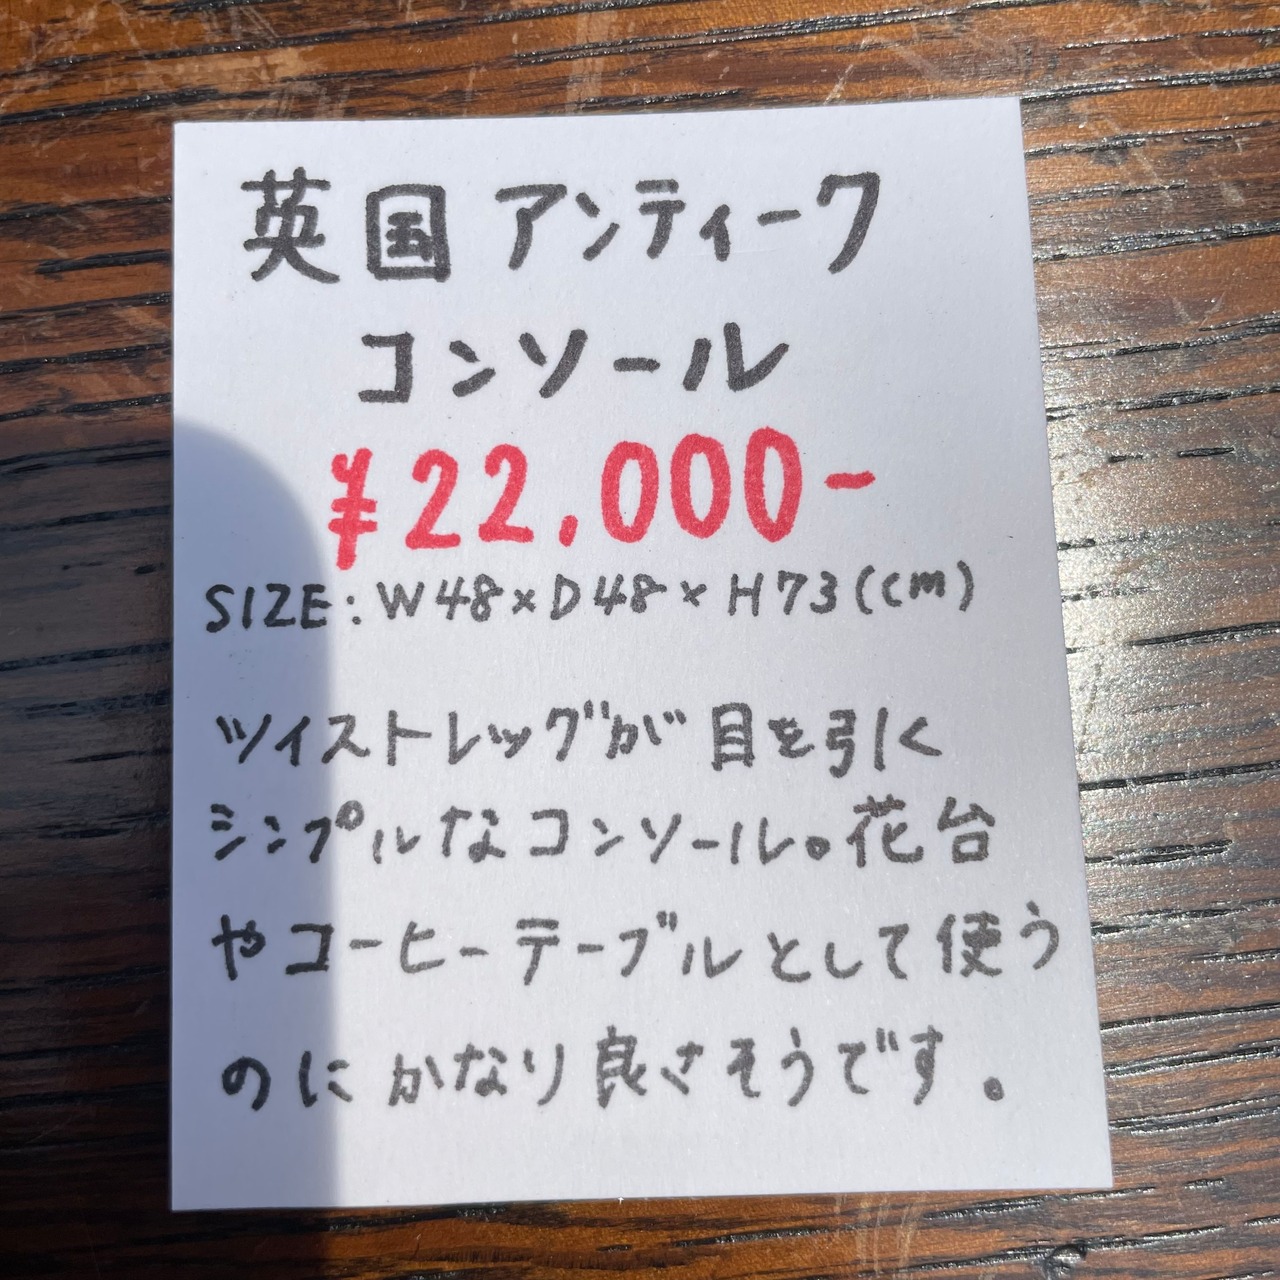 英国アンティーク
コンソール
¥22,000-
SIZE: W48×D48×H73(cm)
ツイストレッグが目を引く
シンプルなコンソール。花台
やコーヒーテーブルとして使う
のにかなり良さそうです。